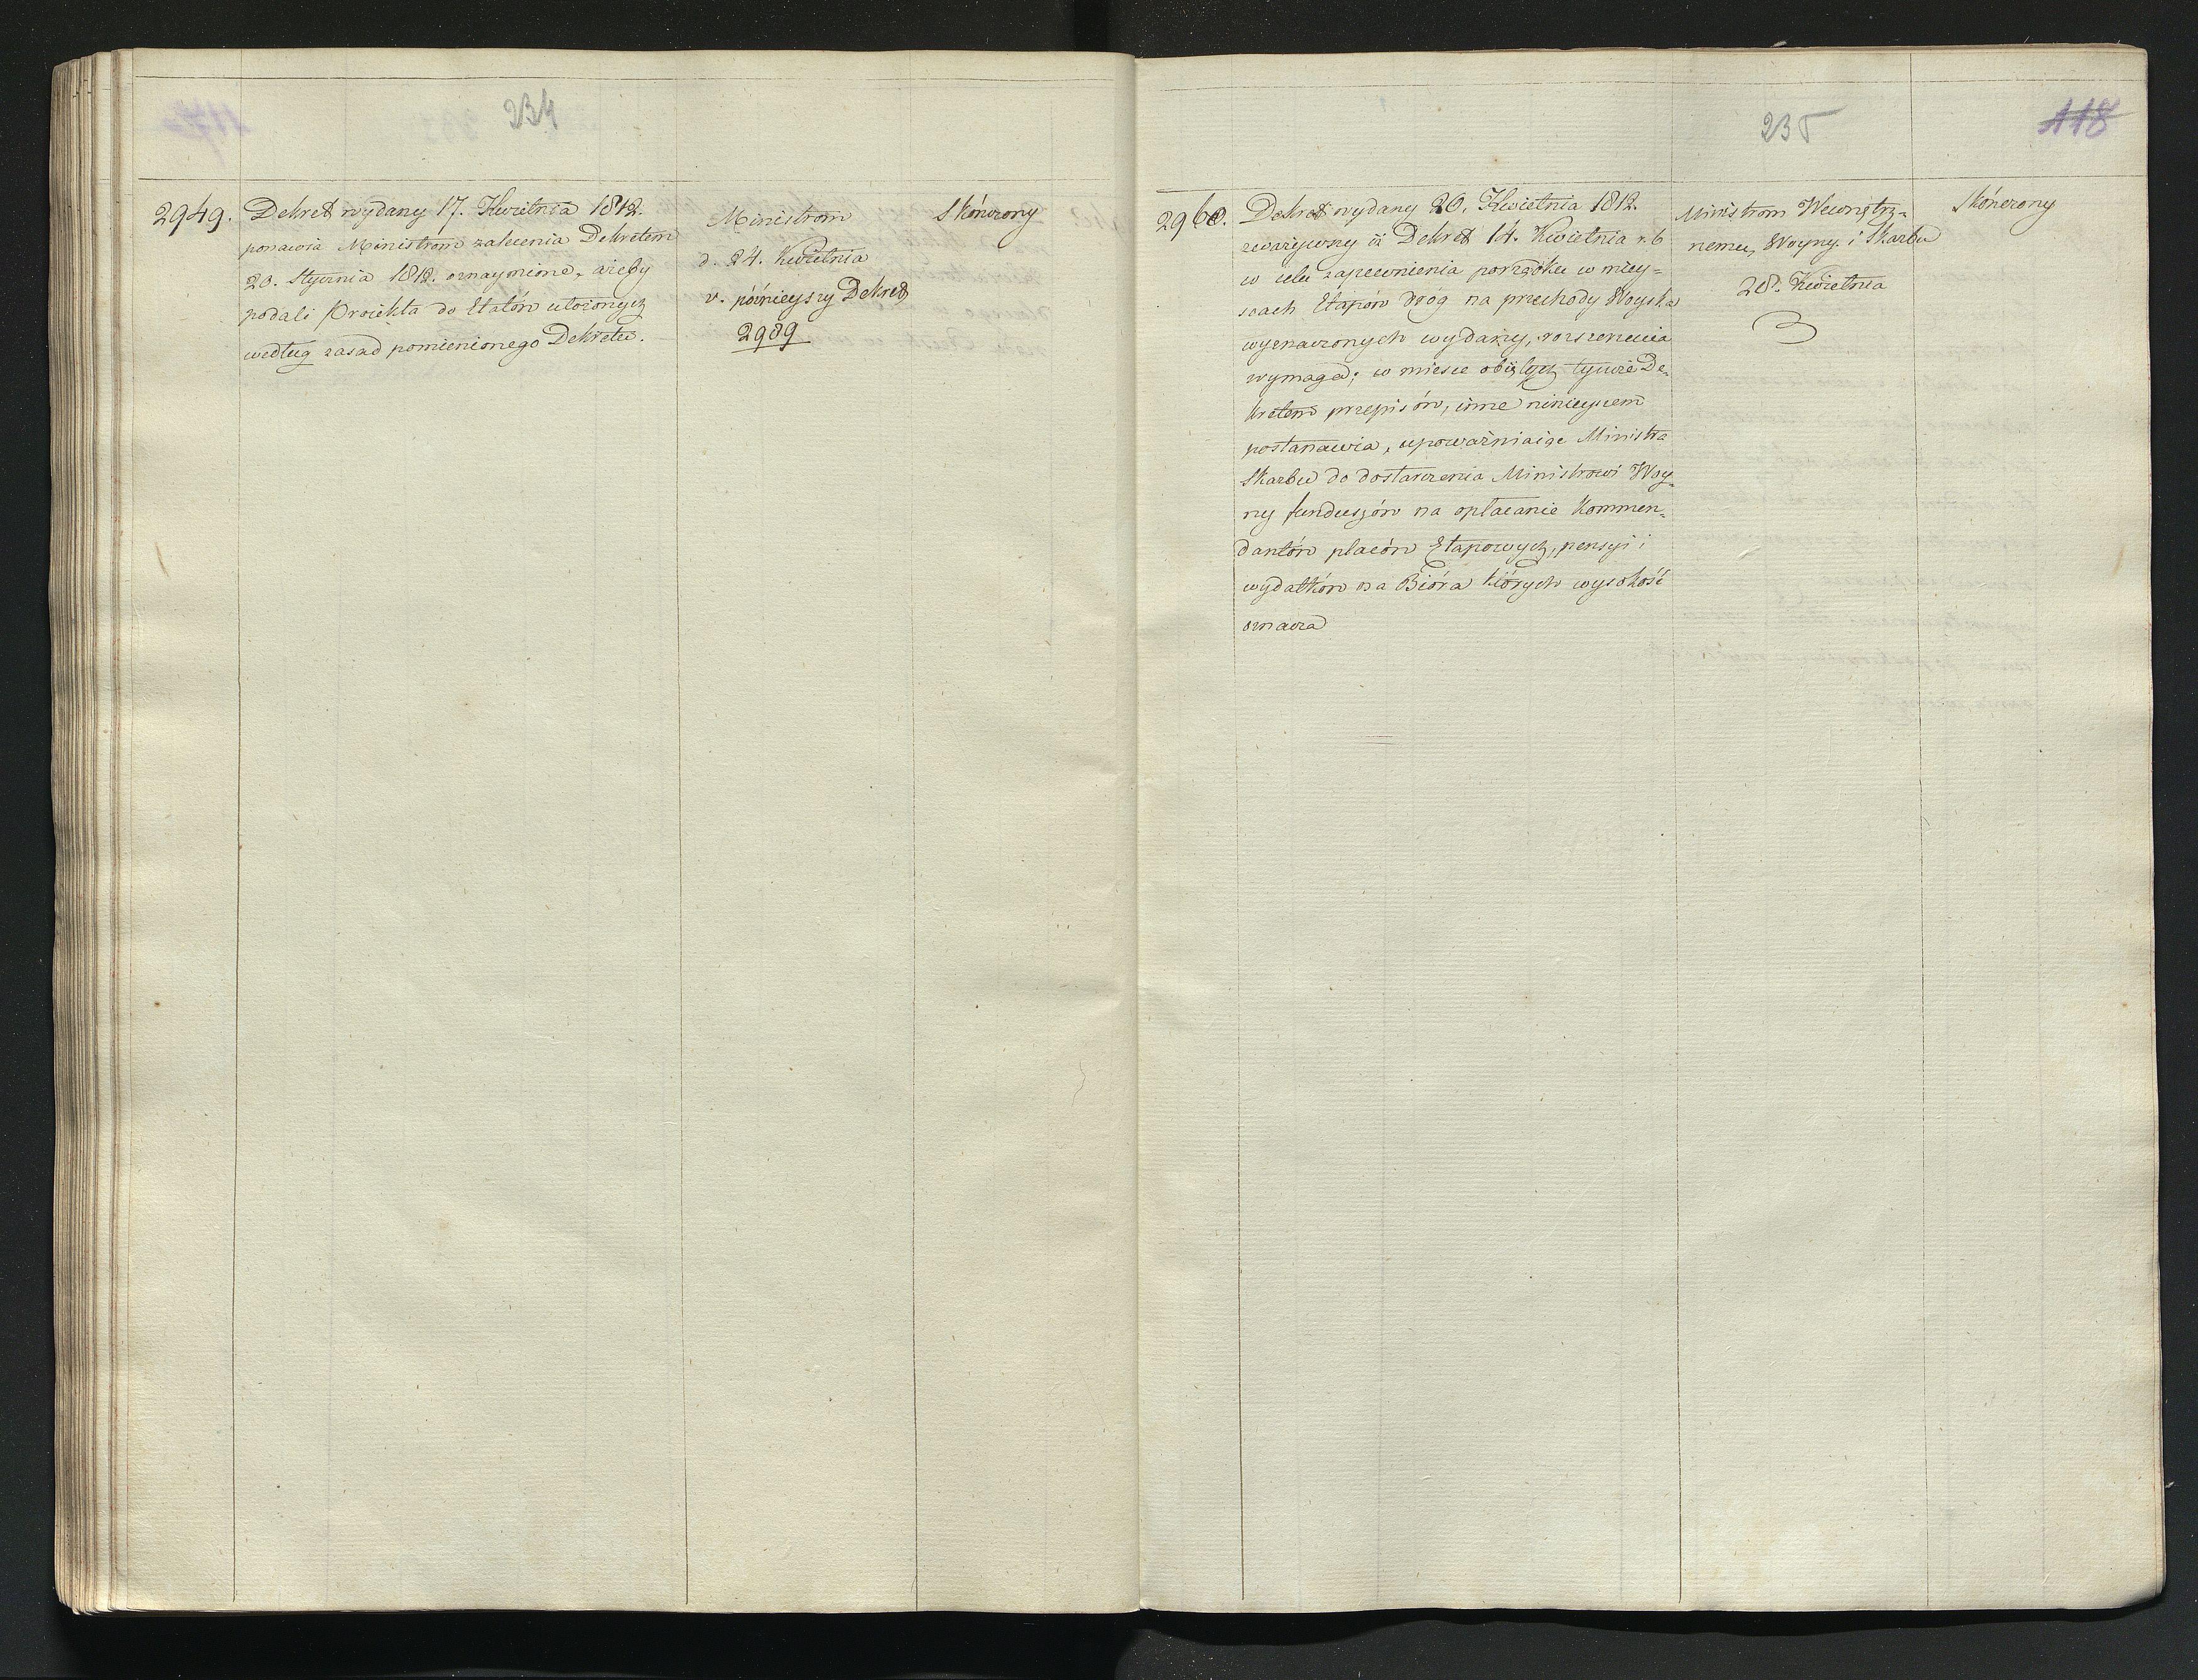 234
2949.
Dekret wydany 17. Kwietnia 1812.
ponawia Ministrom zalecenia Dekretem
20. Stycznia 1812. oznaymione, ażeby
podali Proiekta do Etatów ułożonych
według zasad pomienionego Dekretu.
Ministrom
d. 24. Kwietnia
v. pózńieyszy Dekret
2989
Skończony
235
118
2960.
Dekret wydany 20. Kwietnia 1812.
zważywszy iż Dekret 14. Kwietnia r. b
w celu zapewnienia porządku w miey=
scach Etapów dróg na przechody Woyska
wyznaczonych wydany, rozszerzenia
wymaga; w miesce obiętych tymże De=
kretem przepisów, inne ninieyszem
postanawia, upoważniaiąc Ministra
Skarbu do dostarczenia Ministrowi Woy=
ny funduszów na opłacanie Kommen=
dantów placów Etapowych, pensyi i
wydatków na Bióra których wysokość
oznacza
Ministrom Wewnętrz=
nemu, Woyny i Skarbu
28. Kwietnia
Skończony